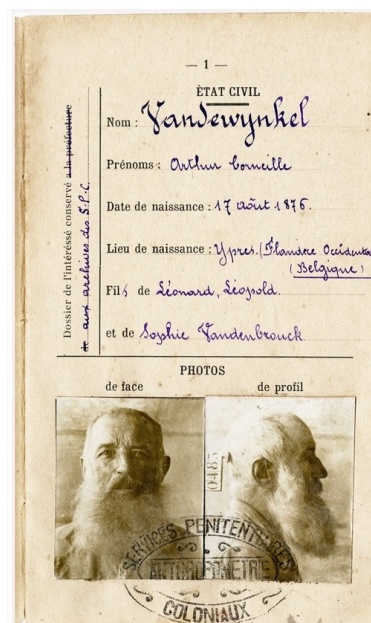 — 1 —
ÉTAT CIVIL
Nom : Vandewynkel
Prénoms : Arthur Corneille
Date de naissance : 17 août 1876.
Lieu de naissance : Ypres. (Flandre Occidenta
(Belgique)
Fils de Léonard, Léopold.
et de Sophie Vandenbrouck
Dossier de l'intéréssé conservé a la préfecture
de aux archives des S.P.C.
PHOTOS
de face
de profil
0483
SERVICES PENITENTIAIRES
ANTROPOMETRIE
COLONIAUX